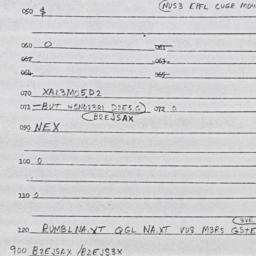 NUS3 EPFL CUGR MOW
050 $
060 0 061
062 063
064 065
070 XAL3M05,D2
071 -BUT WSND23R1 D2E5,G 072 0
B2EJSAX
090 NEX
100 0
110 0
3VE
120 RUMBLNA.XT QGL NA.XT VU3 M3RS GS+E
900 B2EJSAX /B2EJS3X